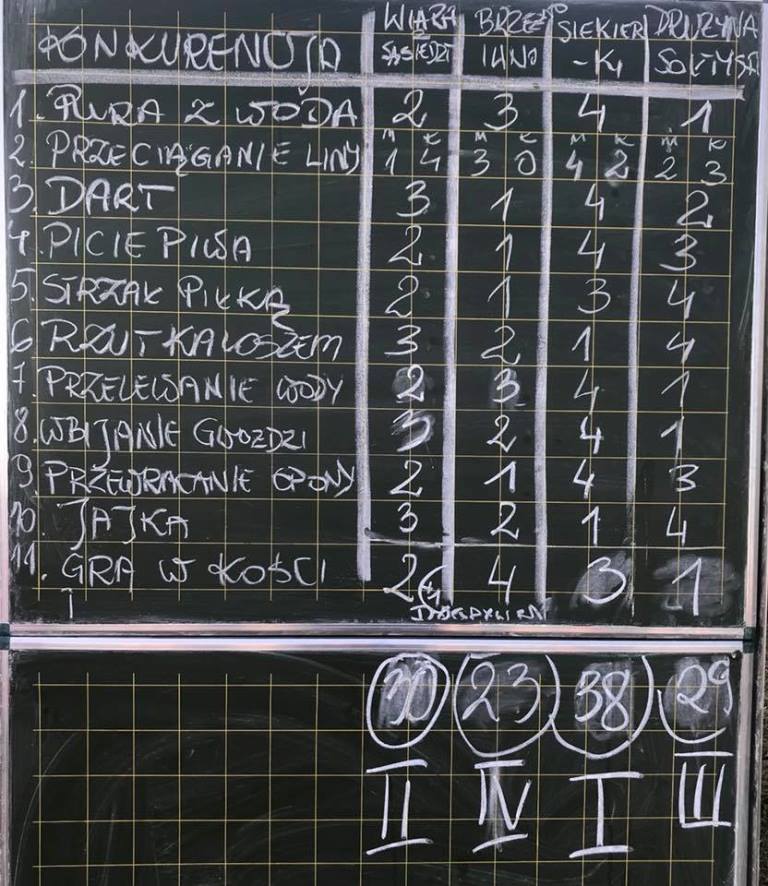 KONKURENCJA WIARA Z SĄSIEDZT BRZEŹNO IŁNO SIEKIER -KI DRUŻYNA SOŁTYSA
1. RURA Z WODA 2 3 4 1
M K M K M K M K
2. PRZECIĄGANIE LINY 1 4 3 0 4 2 2 3
3. DART 3 1 4 2
4. PICIE PIWA 2 1 4 3
5. STRZAŁ PIŁKĄ 2 1 3 4
6 RZUT KALOSZEM 3 2 1 4
7. PRZELEWANIE WODY 2 3 4 1
8. WBIJANIE GWOZDZI 3 2 4 1
9 PRZEWRACANIE OPONY 2 1 4 3
10. JAJKA 3 2 1 4
11. GRA W KOŚCI 2 4 3 1
30 23 38 29
II IV I III